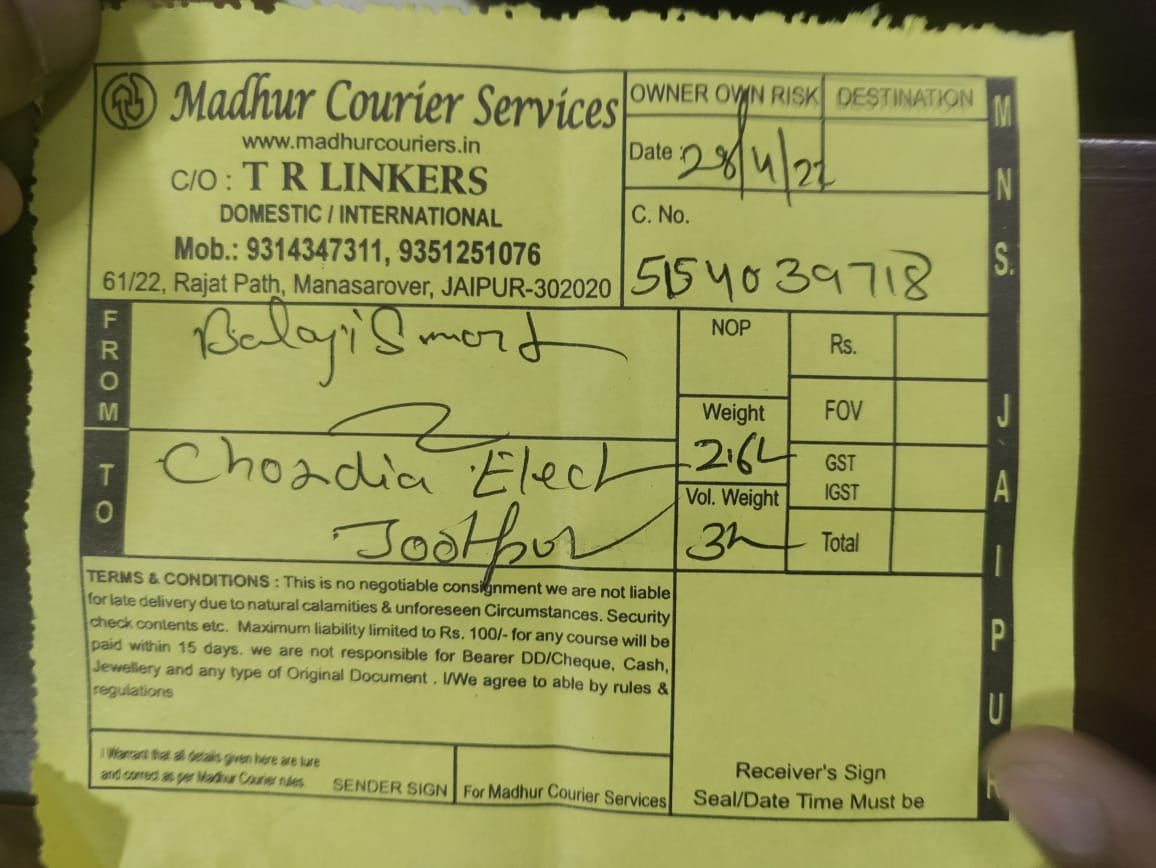 Madhur Courier Services
www.madhurcouriers.in
C/O : T R LINKERS
DOMESTIC / INTERNATIONAL
Mob.: 9314347311, 9351251076
61/22, Rajat Path, Manasarover, JAIPUR-302020
OWNER OWN RISK DESTINATION
Date : 28/4/22
C. No.
5154039718
M N S. J A I P U R
FROM
Balaji Smart
TO
Chordia Elect
Jodhpur
NOP
Weight
2.6
Vol. Weight
3
Rs.
FOV
GST
IGST
Total
TERMS & CONDITIONS : This is no negotiable consignment we are not liable
for late delivery due to natural calamities & unforeseen Circumstances. Security
check contents etc. Maximum liability limited to Rs. 100/- for any course will be
paid within 15 days. we are not responsible for Bearer DD/Cheque, Cash,
Jewellery and any type of Original Document . I/We agree to able by rules &
regulations
I Warrant that all details given here are ture
and correct as per Madhur Courier rules
SENDER SIGN
For Madhur Courier Services
Receiver's Sign
Seal/Date Time Must be